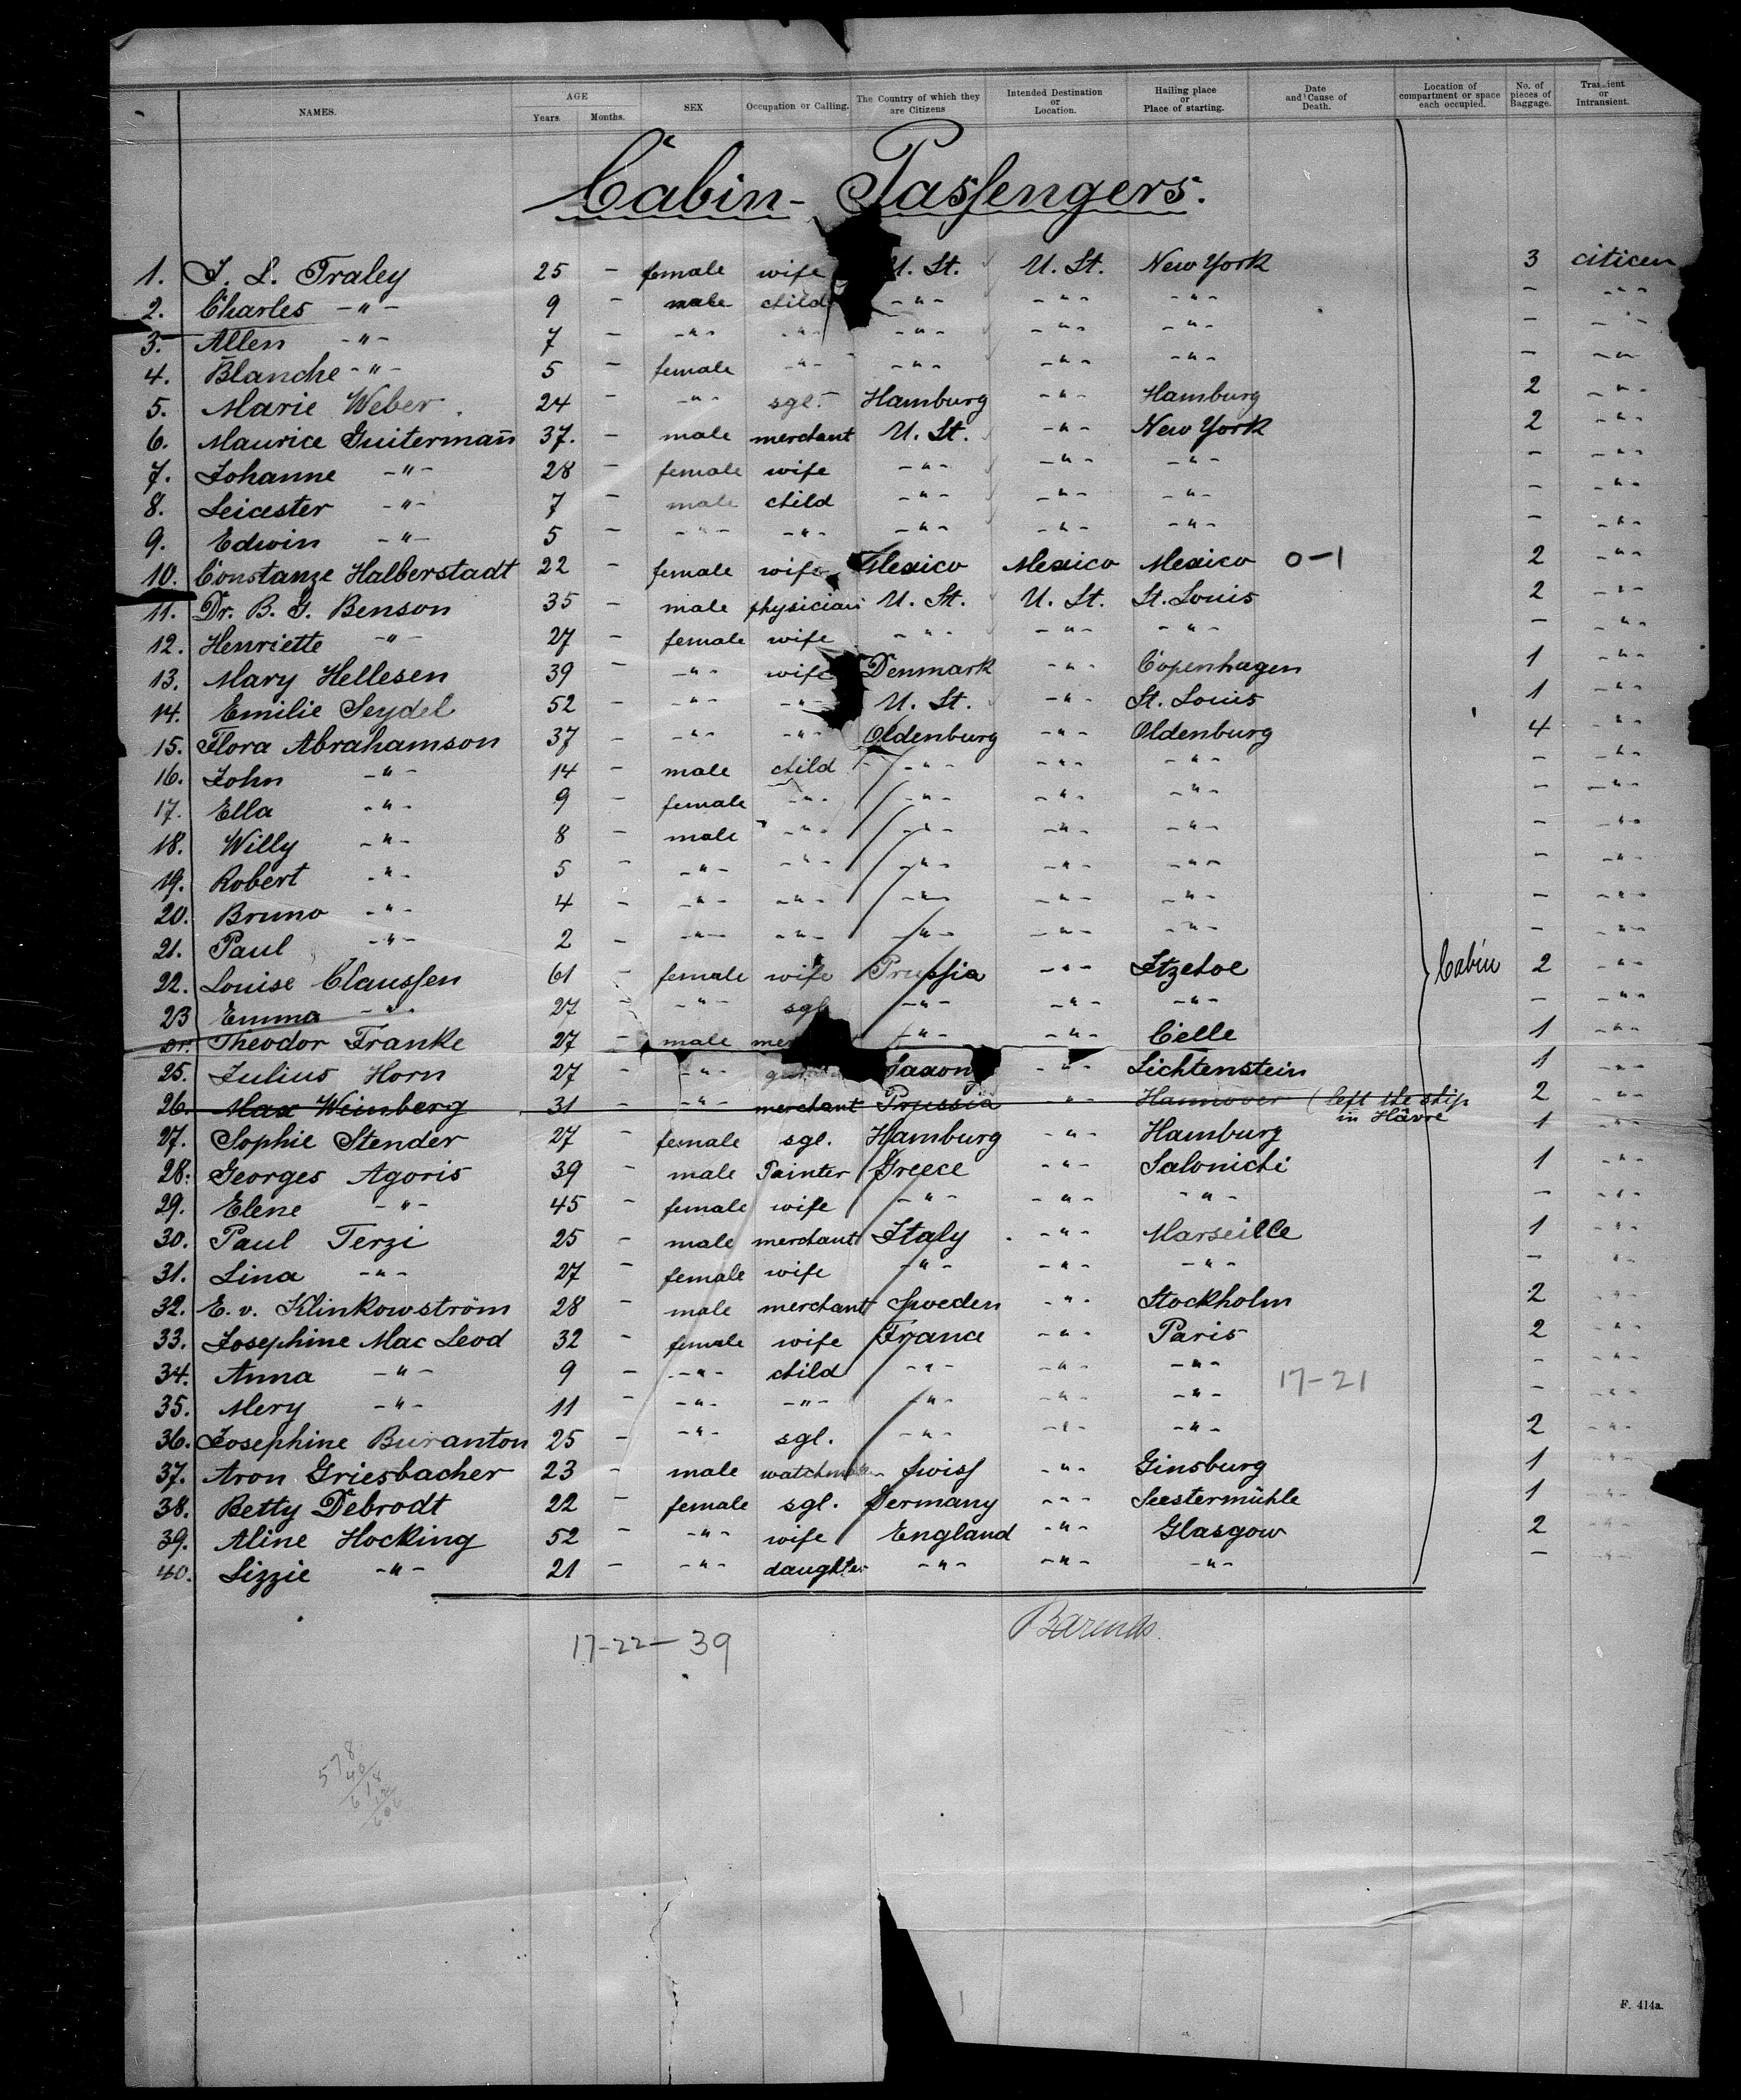 NAMES. AGE Years. Months. SEX Occupation or Calling. The Country of which they are Citizens Intended Destination or Location. Hailing place or Place of starting. Date and Cause of Death. Location of compartment or space each occupied. No. of pieces of Baggage. Transient or Intransient.
Cabin- Passengers.
1. J. L. Traley 25 - female wife U. St. U. St. New York 3 citicen
2. Charles -"- 9 - male child -"- -"- -"- - -"-
3. Allen -"- 7 - -"- -"- -"- -"- -"- - -"-
4. Blanche -"- 5 - female -"- -"- -"- -"- - -"-
5. Marie Weber. 24 - -"- sgl. Hamburg -"- Hamburg 2 -"-
6. Maurice Guitermann 37. - male merchant U. St. -"- New York 2 -"-
7. Johanne -"- 28 - female wife -"- -"- -"- - -"-
8. Leicester -"- 7 - male child -"- -"- -"- - -"-
9. Edwin -"- 5 - -"- -"- -"- -"- -"- - -"-
10. Constanze Halberstadt 22 - female wife Mexico Mexico Mexico 0-1 2 -"-
11. Dr. B. G. Benson 35 - male physician U. St. U. St. St. Louis 2 -"-
12. Henriette -"- 27 - female wife -"- -"- -"- - -"-
13. Mary Hellesen 39 - -"- wife Denmark -"- Copenhagen 1 -"-
14. Emilie Seydel 52 - -"- -"- U. St. -"- St. Louis 1 -"-
15. Flora Abrahamson 37 - -"- -"- Oldenburg -"- Oldenburg 4 -"-
16. John -"- 14 - male child -"- -"- -"- - -"-
17. Ella -"- 9 - female -"- -"- -"- -"- - -"-
18. Willy -"- 8 - male -"- -"- -"- -"- - -"-
19. Robert -"- 5 - -"- -"- -"- -"- -"- - -"-
20. Bruno -"- 4 - -"- -"- -"- -"- -"- - -"-
21. Paul -"- 2 - -"- -"- -"- -"- -"- - -"-
22. Louise Claussen 61 - female wife Prussia -"- Itzehoe Cabin 2 -"-
23 Emma -"- 27 - -"- sgl -"- -"- -"- - -"-
Theodor Franke 27 - male -"- -"- Celle 1 -"-
25. Julius Horn 27 - -"- Saxony -"- Lichtenstein 1 -"-
26. Max Weinberg 31 - -"- merchant Prussia -"- Hannover (left the ship 2 -"-
in Hâvre
27. Sophie Stender 27 - female sgl. Hamburg -"- Hamburg 1 -"-
28. Georges Agoris 39 - male Painter Greece -"- Salonichi 1 -"-
29. Elene -"- 45 - female wife -"- -"- -"- - -"-
30. Paul Terzi 25 - male merchant Italy -"- Marseille 1 -"-
31. Lina -"- 27 - female wife -"- -"- -"- - -"-
32. E. v. Klinkowström 28 - male merchant Sweden -"- Stockholm 2 -"-
33. Josephine Mac Leod 32 - female wife France -"- Paris 2 -"-
34. Anna -"- 9 - -"- child -"- -"- -"- 17-21 - -"-
35. Mery -"- 11 - -"- -"- -"- -"- -"- - -"-
36. Josephine Buranton 25 - -"- sgl. -"- -"- -"- 2 -"-
37. Aron Griesbacher 23 - male Swiss -"- Ginsburg 1 -"-
38. Betty Debrodt 22 - female sgl. Germany -"- Seestermühle 1 -"-
39. Aline Hocking 52 - -"- wife England -"- Glasgow 2 -"-
40. Lizzie -"- 21 - -"- daughter -"- -"- -"- - -"-
Barends.
17-22-39
578
40
618
12
606
F. 414a.